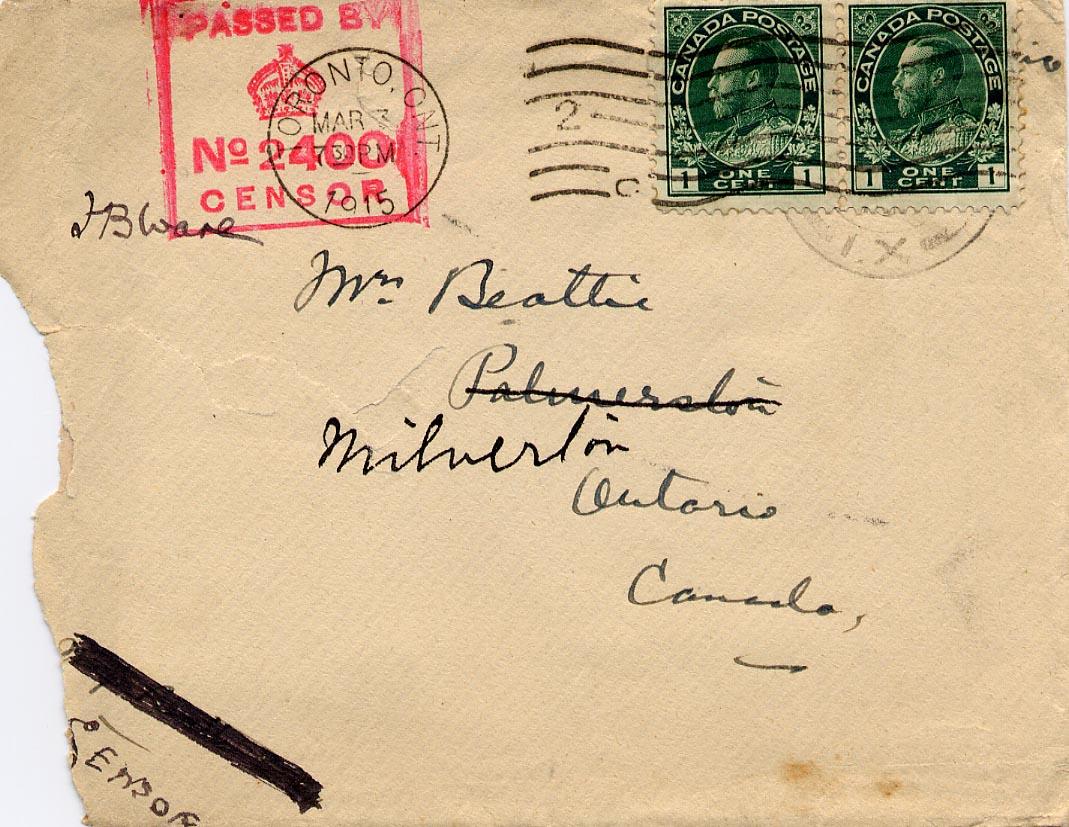 PASSED BY
No 2400
CENSOR
TORONTO, ONT.
MAR 3
7 30 PM
1915
2
C
CANADA POSTAGE
1 ONE CENT 1
CANADA POSTAGE
1 ONE CENT 1
Mrs Beattie
Palmerston
Milverton
Ontario
Canada,
CENSOR